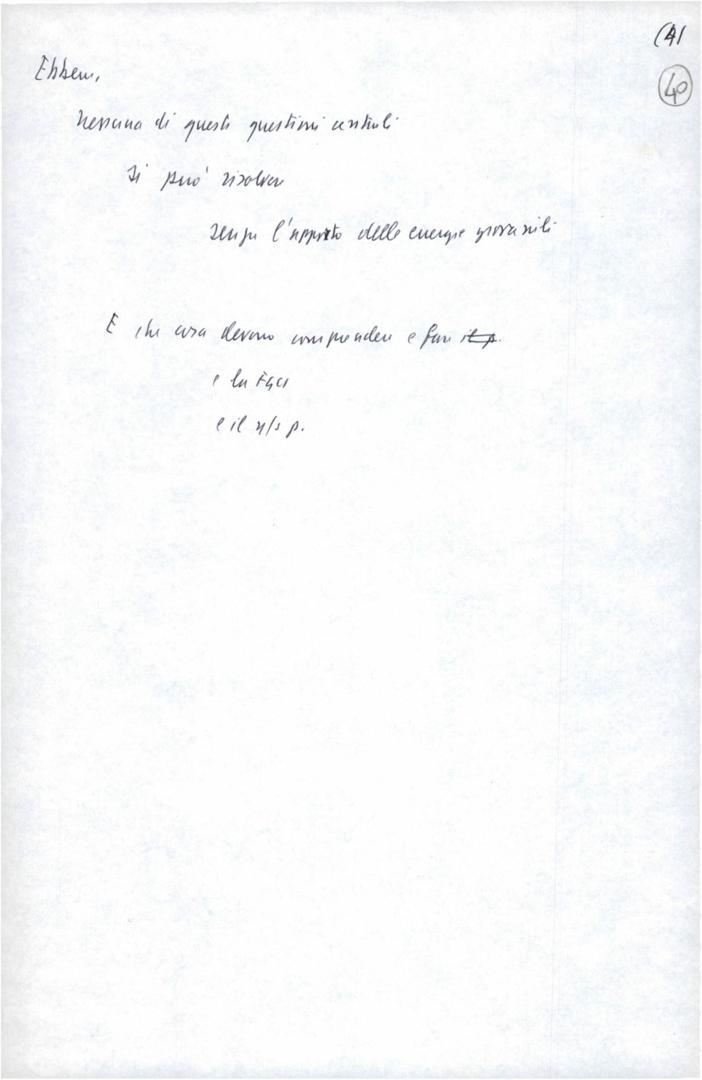 (41
40
Ebbene,
nessuna di queste questioni centrali
si può risolvere
senza l'apporto delle energie giovanili
E che cosa devono comprendere e fare il p.
e la FGCI
e il n/s p.